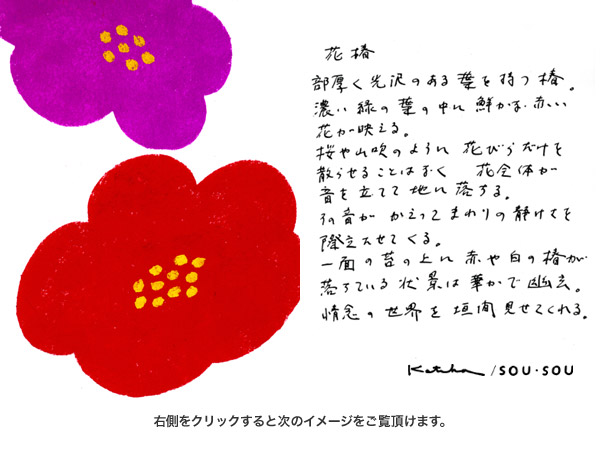 花椿
部厚く光沢のある葉を持つ椿。
濃い緑の葉の中に鮮かな赤い
花が映える。
桜や山吹のように花びらだけを
散らせることはなく 花全体が
音を立てて地に落ちる。
その音が かえってまわりの静けさを
際立たせてくる。
一面の苔の上に赤や白の椿が
落ちている状景は華かで幽玄。
情念の世界を垣間見せてくれる。
Katsuji /SOU・SOU
右側をクリックすると次のイメージをご覧頂けます。